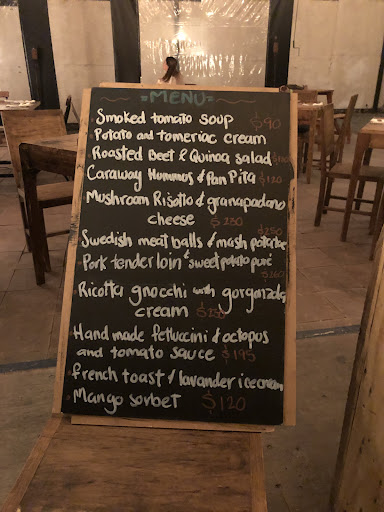 =MENU=
Smoked tomato soup $90
Potato and tomeriac cream
Roasted Beet & Quinoa salad
Caraway Hummos & Pan Pita $120
Mushroom Risotto & granapadano
cheese $230
Swedish meat balls & mash potatoe $250
Pork tenderloin & sweet potato puré $260
Ricotta gnocchi with gorgonzola
cream $230
Hand made fettuccini & octopus
and tomato sauce $195
french toast & lavander icecream
Mango sorbet $120